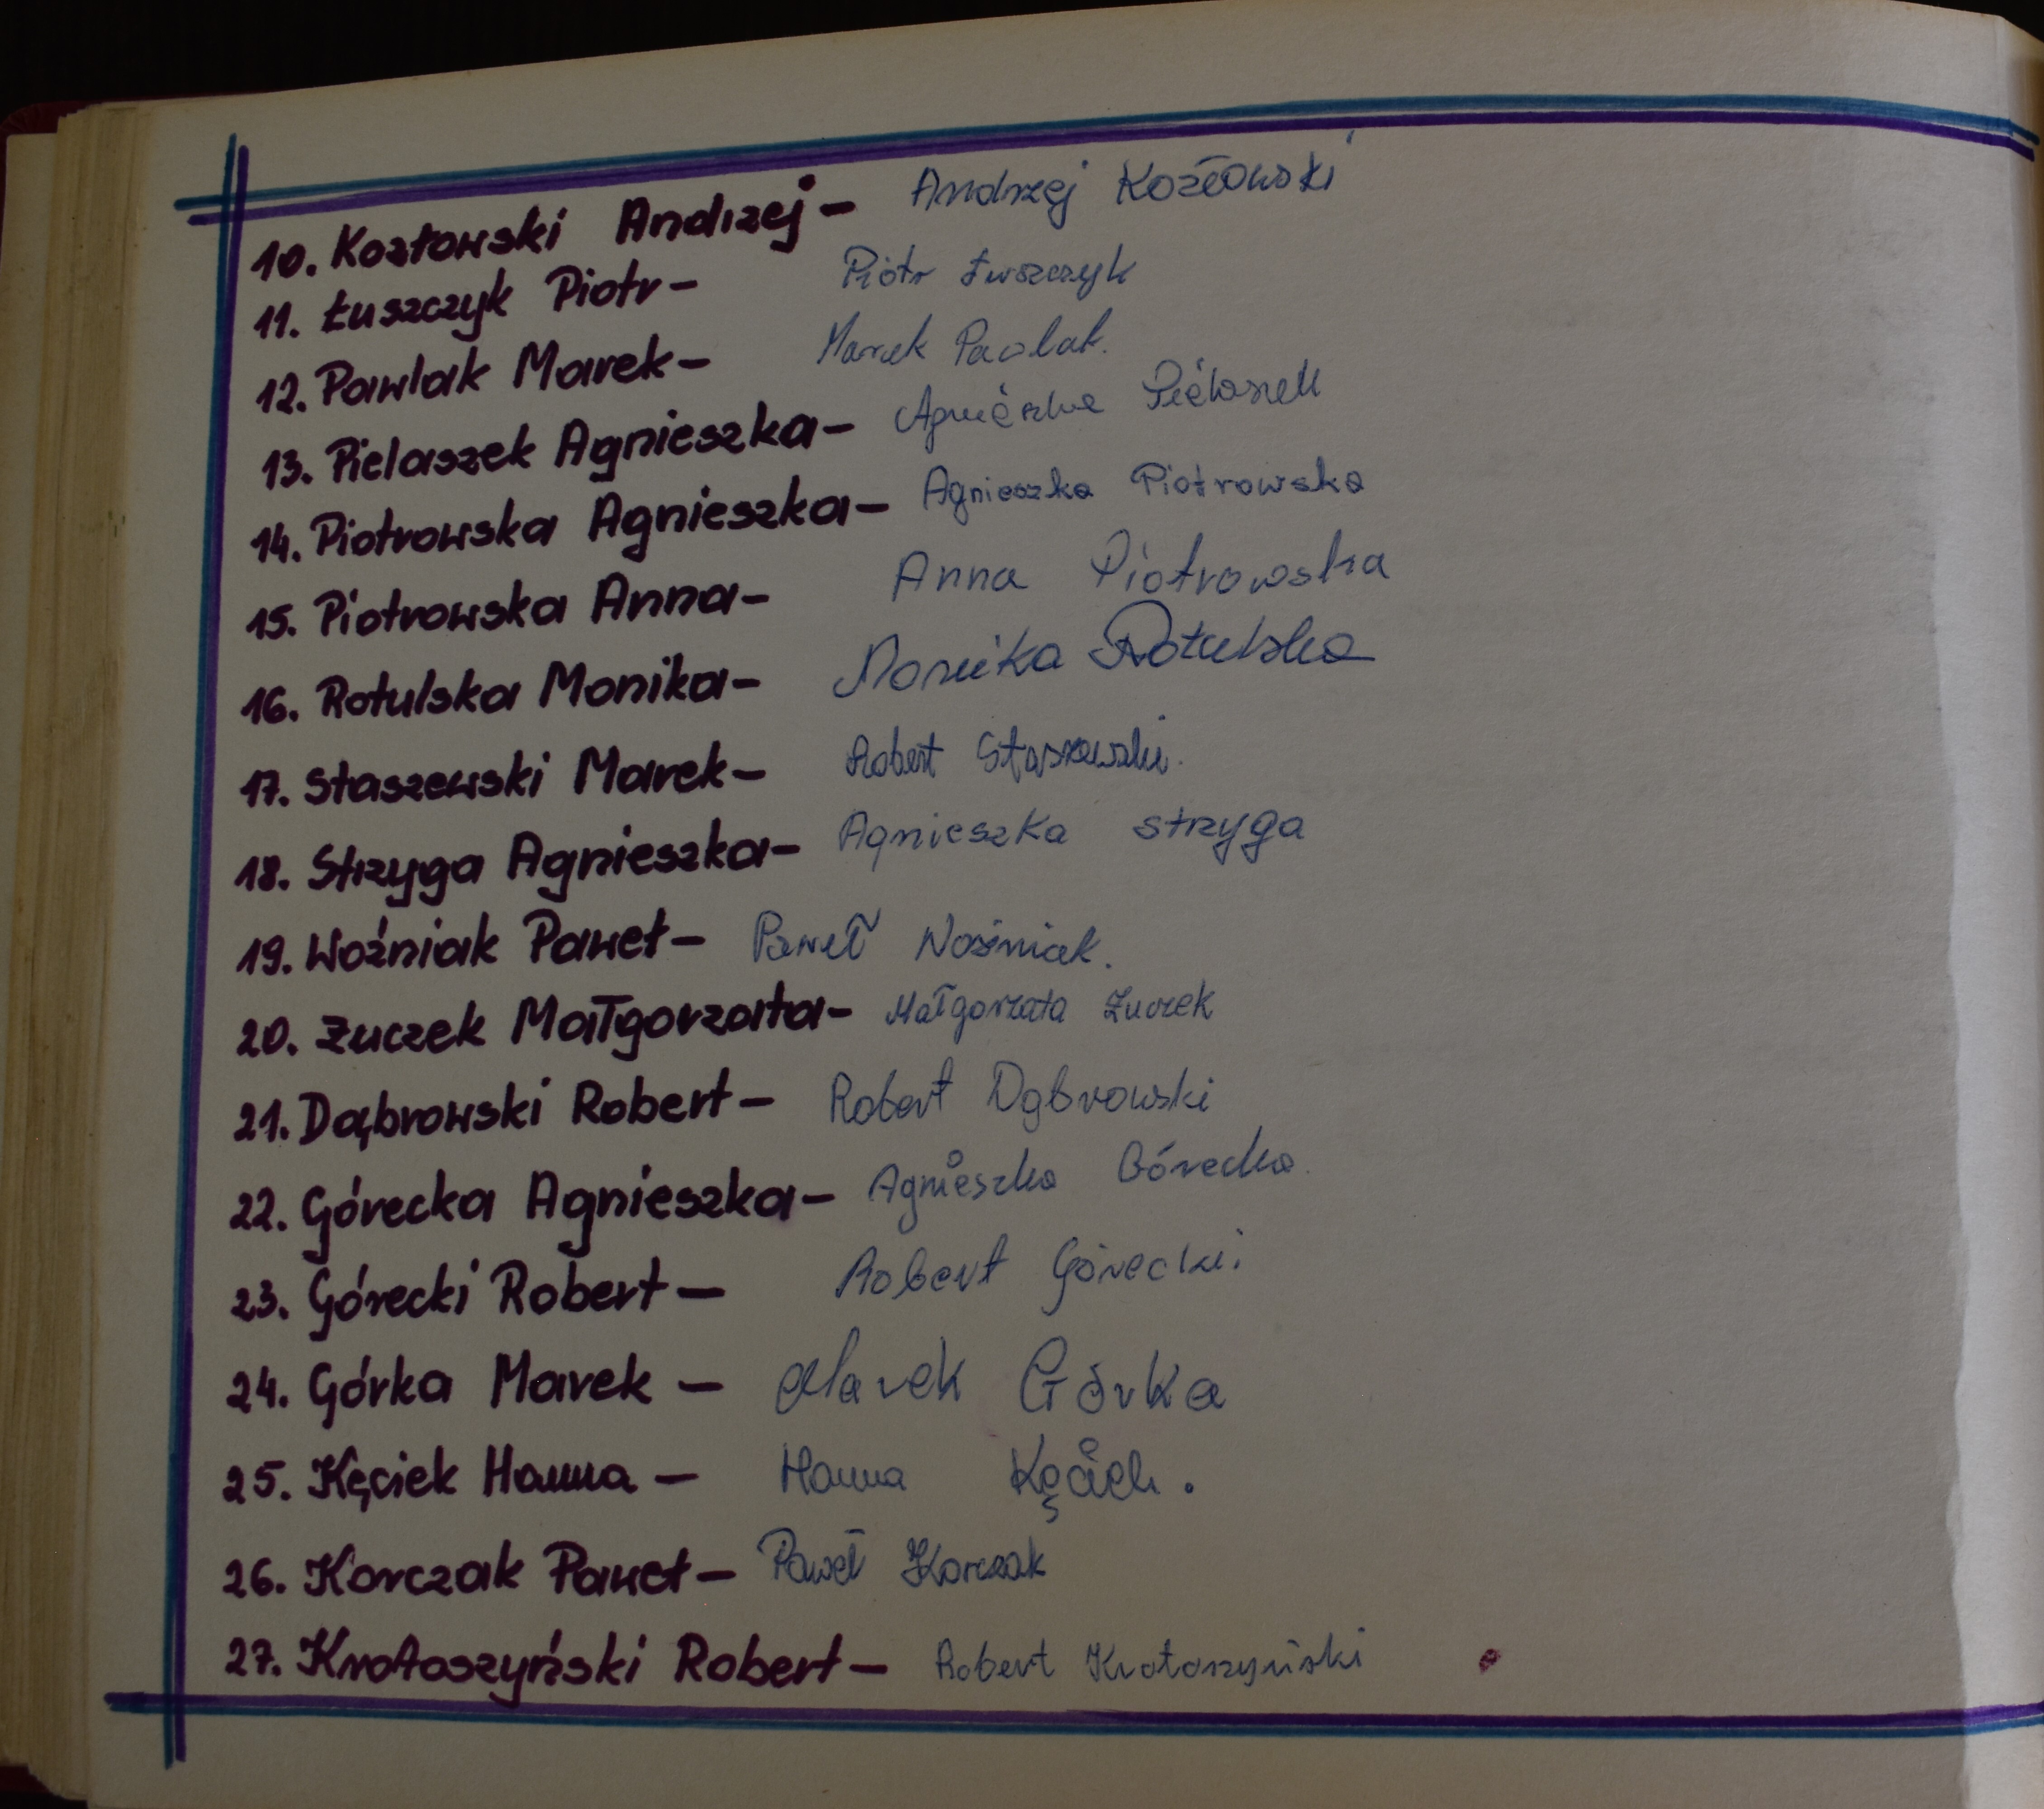 10. Kozłowski Andrzej - Andrzej Kozłowski
11. Łuszczyk Piotr - Piotr Łuszczyk
12. Pawlak Marek - Marek Pawlak.
13. Pielaszek Agnieszka - Agnieszka Pielaszek
14. Piotrowska Agnieszka - Agnieszka Piotrowska
15. Piotrowska Anna - Anna Piotrowska
16. Rotulska Monika - Monika Rotulska
17. Staszewski Marek - Robert Staszewski.
18. Strzyga Agnieszka - Agnieszka Strzyga
19. Woźniak Paweł - Paweł Woźniak.
20. Żuczek Małgorzata - Małgorzata Żuczek
21. Dąbrowski Robert - Robert Dąbrowski
22. Górecka Agnieszka - Agnieszka Górecka.
23. Górecki Robert - Robert Górecki.
24. Górka Marek - Marek Górka
25. Kęciek Hanna - Hanna Kęciek.
26. Korczak Paweł - Paweł Korczak
27. Krotoszyński Robert - Robert Krotoszyński